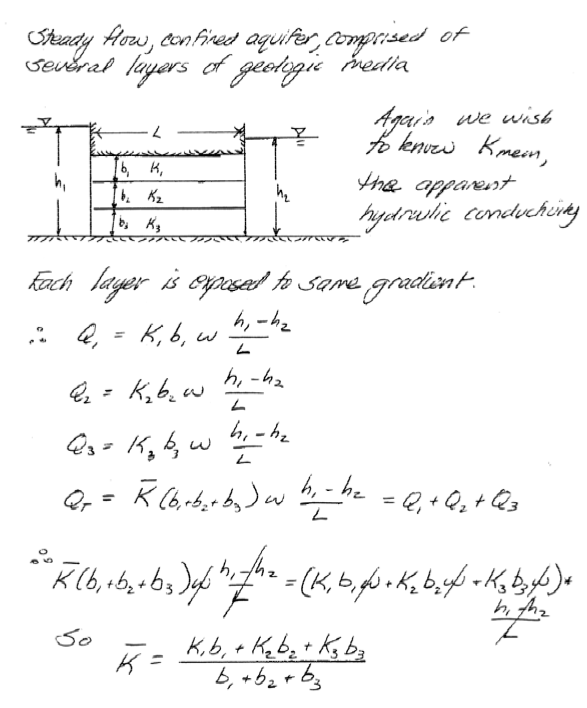 Steady flow, confined aquifer, comprised of
several layers of geologic media
L
h₁
b₁ K₁
b₂ K₂
b₃ K₃
h₂
Again we wish
to know Kmean,
the apparent
hydraulic conductivity
Each layer is exposed to same gradient.
∴ Q₁ = K₁ b₁ w (h₁ - h₂)/L
Q₂ = K₂ b₂ w (h₁ - h₂)/L
Q₃ = K₃ b₃ w (h₁ - h₂)/L
Q_T = K̄ (b₁ + b₂ + b₃) w (h₁ - h₂)/L = Q₁ + Q₂ + Q₃
∴ K̄ (b₁ + b₂ + b₃) w (h₁ - h₂)/L = (K₁ b₁ w + K₂ b₂ w + K₃ b₃ w) * (h₁ - h₂)/L
So
K̄ = (K₁b₁ + K₂b₂ + K₃b₃)/(b₁ + b₂ + b₃)